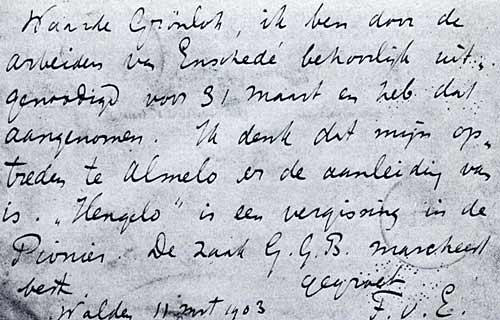 Waarde Grönloh, ik ben door de
arbeiders van Enschedé behoorlijk uit-
genoodigd voor 31 maart en heb dat
aangenomen. Ik denk dat mijn op-
treden te Almelo er de aanleiding van
is. „Hengelo" is een vergissing in de
Pionier. De zaak G.G.B. marcheert
best. gegroet
Walden 11 mrt 1903 F. v. E.